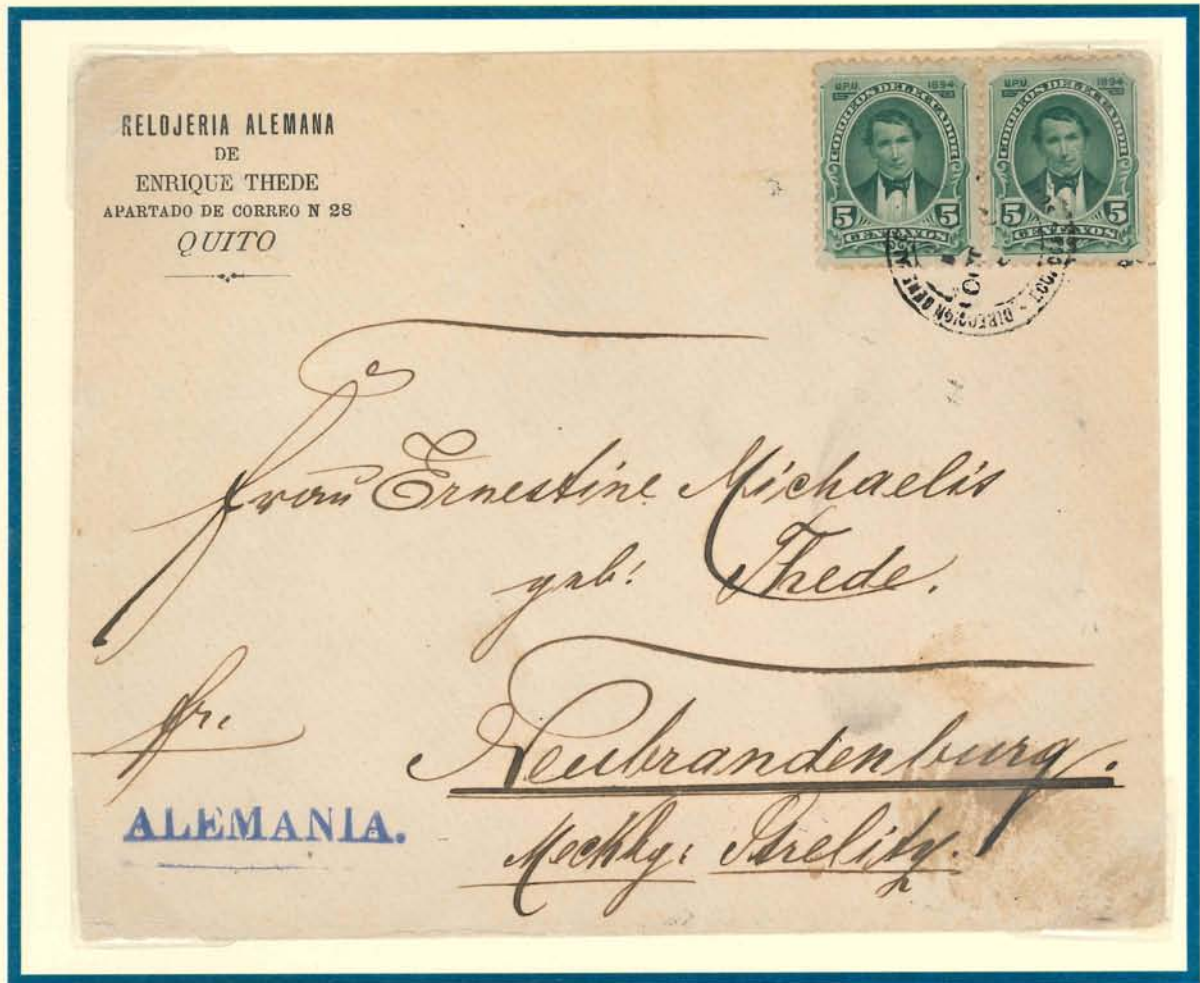 RELOJERIA ALEMANA
DE
ENRIQUE THEDE
APARTADO DE CORREO N 28
QUITO
U.P.U 1894
CORREOS DEL ECUADOR
5 5
CENTAVOS
U.P.U 1894
CORREOS DEL ECUADOR
5 5
CENTAVOS
DIRECCION OCT
Frau Ernestine Michaelis
geb: Thede.
fr.
Neubrandenburg.
Mecklbg: Strelitz.
ALEMANIA.